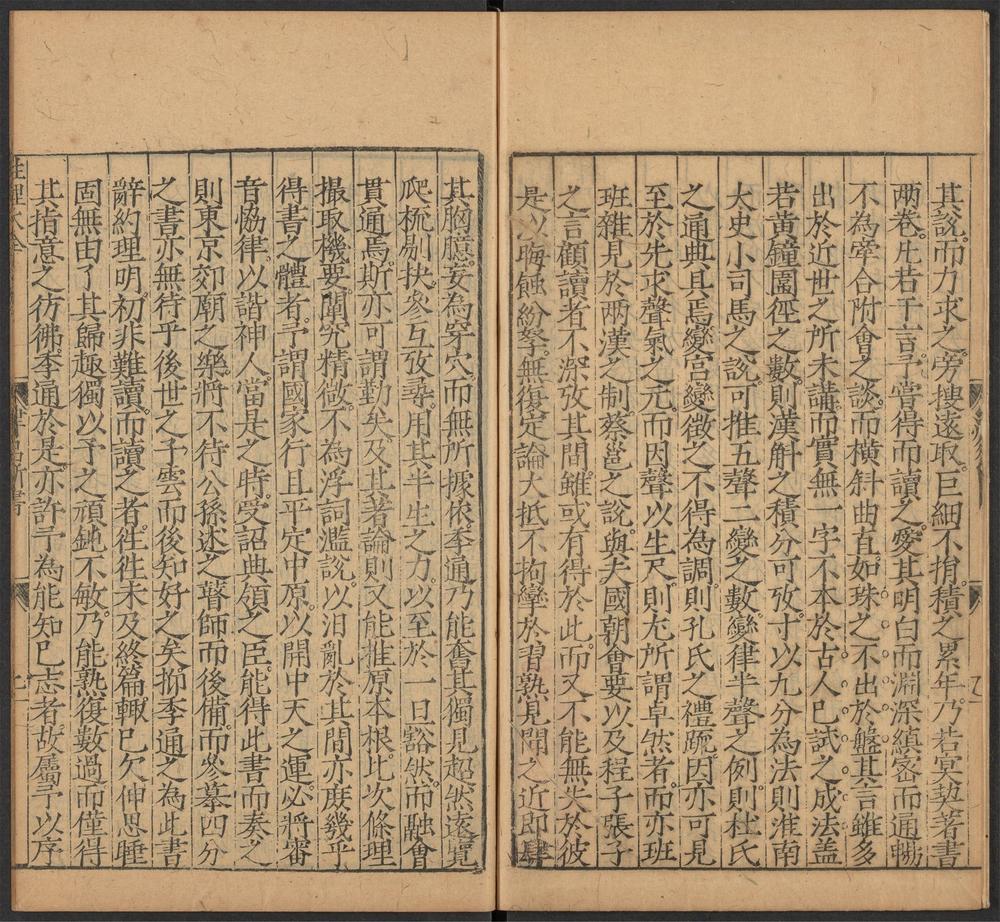 其說而力求之旁搜遠取巨細不捐積之累年乃若冥契著書
兩卷凡若干言予嘗得而讀之愛其明白而淵深縝密而通暢
不為牽合附會之談而橫斜曲直如珠之不出於盤其言雖多
出於近世之所未講而實無一字不本於古人已試之成法蓋
若黃鐘圍徑之數則漢斛之積分可攷寸以九分為法則淮南
太史小司馬之說可推五聲二變之數變律半聲之例則杜氏
之通典具焉變宮變徵之不得為調則孔氏之禮疏因亦可見
至於先求聲氣之元而因聲以生尺則尤所謂卓然者而亦班
班雜見於兩漢之制蔡邕之說與夫國朝會要以及程子張子
之言顧讀者不深攷其間雖或有得於此而又不能無失於彼
是以晦蝕紛拏無復定論大抵不拘攣於習熟見聞之近即肆
其胸臆妄為穿穴而無所據依季通乃能奮其獨見超然遠覽
爬梳剔抉參互攷尋用其半生之力以至於一旦豁然而融會
貫通焉斯亦可謂勤矣及其著論則又能推原本根比次條理
撮取機要闡究精微不為浮詞濫說以汨亂於其間亦庶幾乎
得書之體者予謂國家行且平定中原以開中天之運必將審
音協律以諧神人當是之時受詔典領之臣能得此書而奏之
則東京郊廟之樂將不待公孫述之瞽師而後備而參摹四分
之書亦無待乎後世之子雲而後知好之矣抑季通之為此書
辭約理明初非難讀而讀之者往往未及終篇輒已欠伸思睡
固無由了其歸趣獨以予之頑鈍不敏乃能熟復數過而僅得
其指意之彷彿季通於是亦許予為能知己志者故屬予以序
性理大全